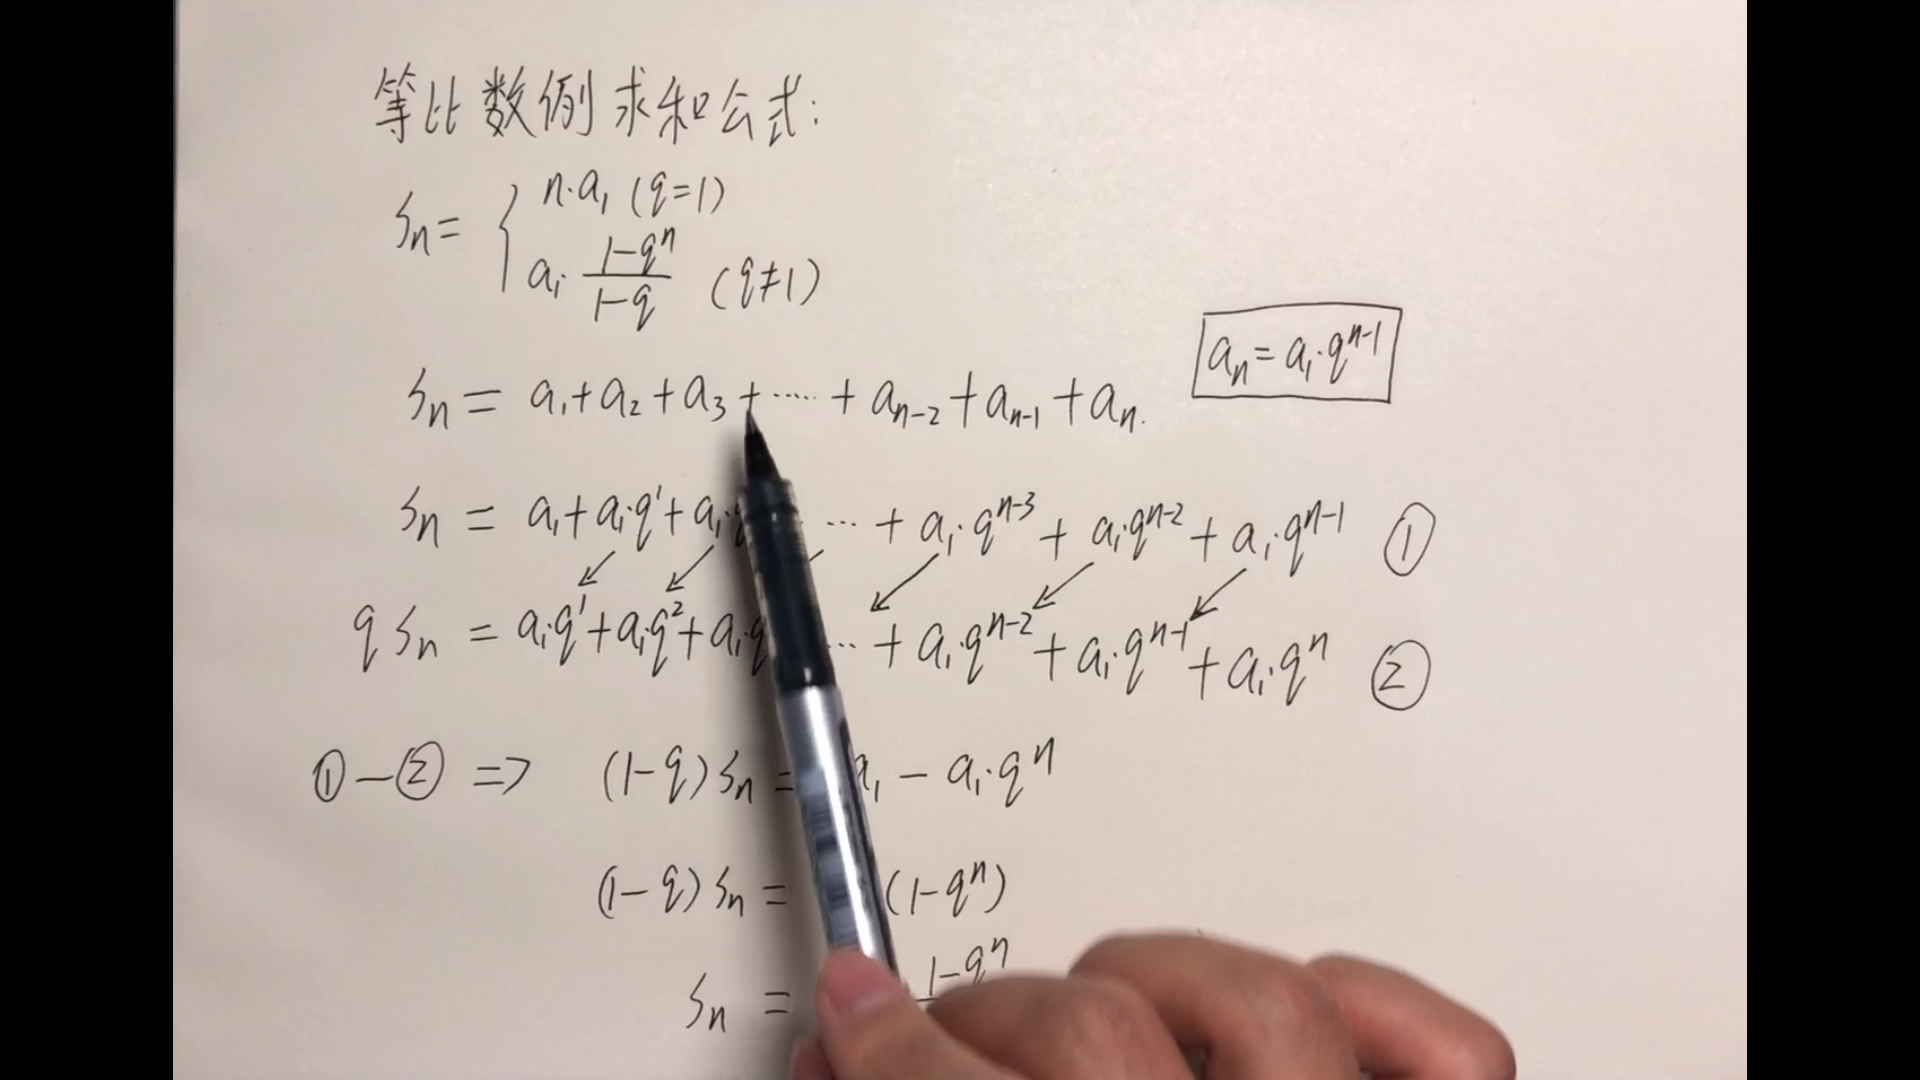 等比数例求和公式:
Sₙ = { n·a₁ (q=1)
a₁· (1-qⁿ)/(1-q) (q≠1)
aₙ = a₁·qⁿ⁻¹
Sₙ = a₁+a₂+a₃+·····+aₙ₋₂+aₙ₋₁+aₙ.
Sₙ = a₁+a₁·q¹+a₁· ···+a₁·qⁿ⁻³+a₁·qⁿ⁻²+a₁·qⁿ⁻¹ ①
qSₙ = a₁·q¹+a₁·q²+a₁·q ···+a₁·qⁿ⁻²+a₁·qⁿ⁻¹+a₁·qⁿ ②
①-② => (1-q)Sₙ = a₁ - a₁·qⁿ
(1-q)Sₙ = (1-qⁿ)
Sₙ = 1-qⁿ